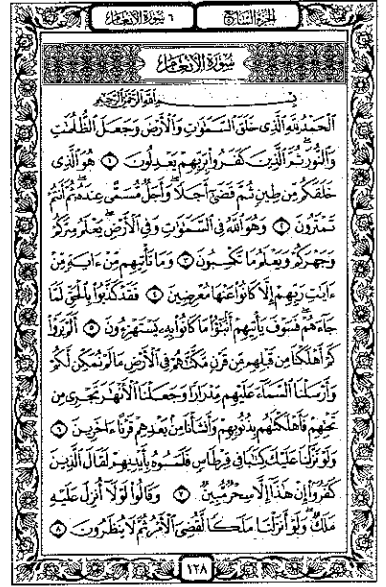 الجزء السابع
٦ سورة الأنعام
سورة الأنعام
بسم الله الرحمن الرحيم
ٱلۡحَمۡدُ لِلَّهِ ٱلَّذِي خَلَقَ ٱلسَّمَٰوَٰتِ وَٱلۡأَرۡضَ وَجَعَلَ ٱلظُّلُمَٰتِ
وَٱلنُّورَۖ ثُمَّ ٱلَّذِينَ كَفَرُواْ بِرَبِّهِمۡ يَعۡدِلُونَ ١ هُوَ ٱلَّذِي
خَلَقَكُم مِّن طِينٖ ثُمَّ قَضَىٰٓ أَجَلٗاۖ وَأَجَلٞ مُّسَمًّى عِندَهُۥۖ ثُمَّ أَنتُمۡ
تَمۡتَرُونَ ٢ وَهُوَ ٱللَّهُ فِي ٱلسَّمَٰوَٰتِ وَفِي ٱلۡأَرۡضِ يَعۡلَمُ سِرَّكُمۡ
وَجَهۡرَكُمۡ وَيَعۡلَمُ مَا تَكۡسِبُونَ ٣ وَمَا تَأۡتِيهِم مِّنۡ ءَايَةٖ مِّنۡ
ءَايَٰتِ رَبِّهِمۡ إِلَّا كَانُواْ عَنۡهَا مُعۡرِضِينَ ٤ فَقَدۡ كَذَّبُواْ بِٱلۡحَقِّ لَمَّا
جَآءَهُمۡ فَسَوۡفَ يَأۡتِيهِمۡ أَنۢبَٰٓؤُاْ مَا كَانُواْ بِهِۦ يَسۡتَهۡزِءُونَ ٥ أَلَمۡ يَرَوۡاْ
كَمۡ أَهۡلَكۡنَا مِن قَبۡلِهِم مِّن قَرۡنٖ مَّكَّنَّٰهُمۡ فِي ٱلۡأَرۡضِ مَا لَمۡ نُمَكِّن لَّكُمۡ
وَأَرۡسَلۡنَا ٱلسَّمَآءَ عَلَيۡهِم مِّدۡرَارٗا وَجَعَلۡنَا ٱلۡأَنۡهَٰرَ تَجۡرِي مِن
تَحۡتِهِمۡ فَأَهۡلَكۡنَٰهُم بِذُنُوبِهِمۡ وَأَنشَأۡنَا مِنۢ بَعۡدِهِمۡ قَرۡنًا ءَاخَرِينَ ٦
وَلَوۡ نَزَّلۡنَا عَلَيۡكَ كِتَٰبٗا فِي قِرۡطَاسٖ فَلَمَسُوهُ بِأَيۡدِيهِمۡ لَقَالَ ٱلَّذِينَ
كَفَرُوٓاْ إِنۡ هَٰذَآ إِلَّا سِحۡرٞ مُّبِينٞ ٧ وَقَالُواْ لَوۡلَآ أُنزِلَ عَلَيۡهِ
مَلَكٞۖ وَلَوۡ أَنزَلۡنَا مَلَكٗا لَّقُضِيَ ٱلۡأَمۡرُ ثُمَّ لَا يُنظَرُونَ ٨
١٢٨